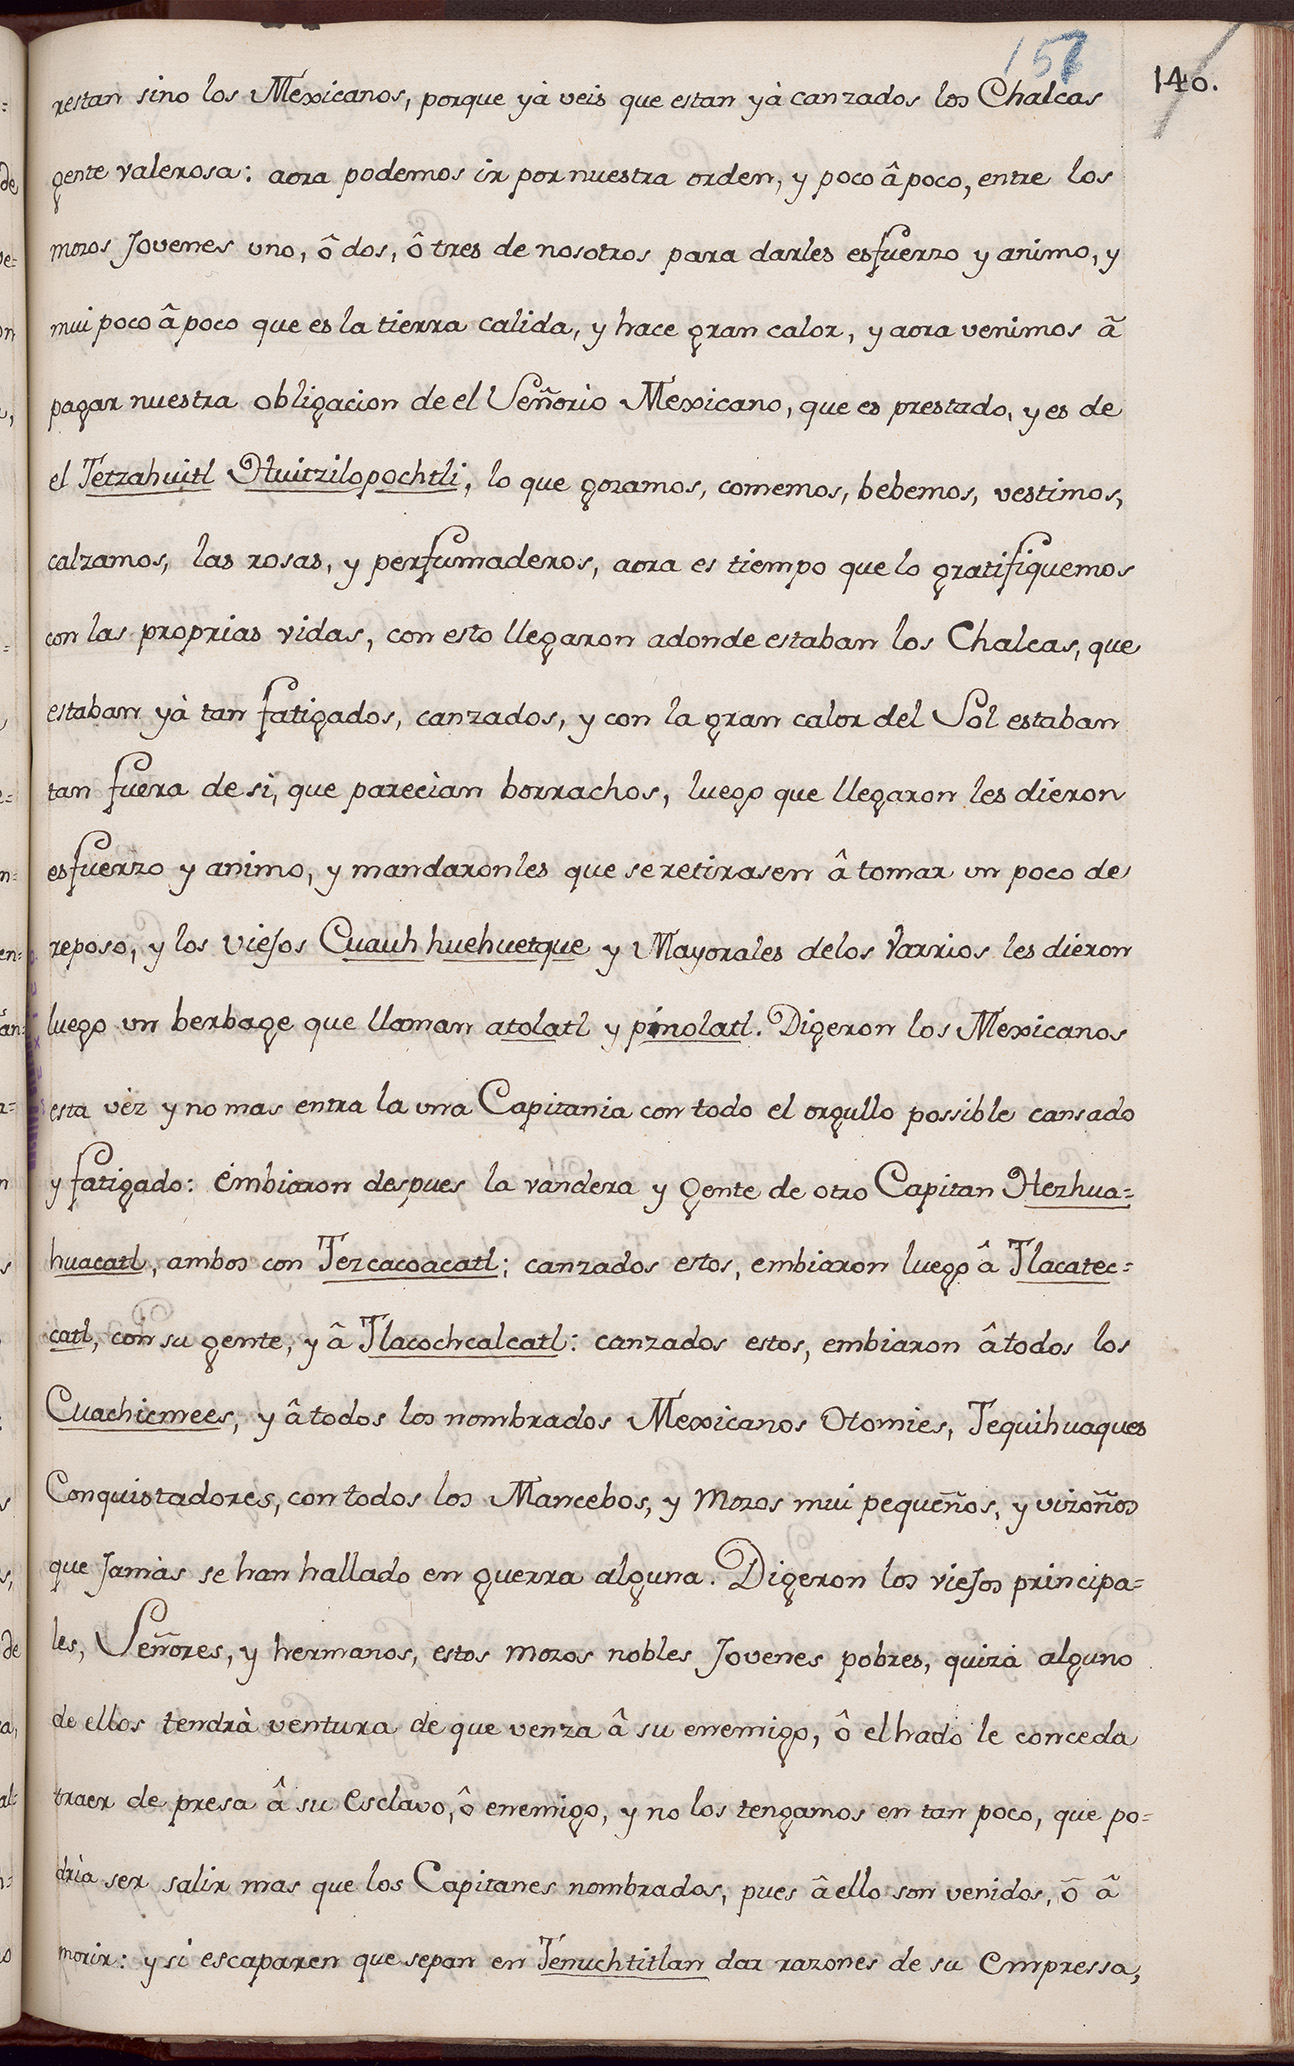 157
140.
restan sino los Mexicanos, porque yà veis que estan yà canzados los Chalcas
gente valerosa: aora podemos ir por nuestra orden, y poco â poco, entre los
mozos Jovenes uno, ô dos, ô tres de nosotros para darles esfuerzo y animo, y
mui poco â poco que es la tierra calida, y hace gran calor, y aora venimos â
pagar nuestra obligacion de el Señorio Mexicano, que es prestado, y es de
el Tetzahuitl Huitzilopochtli, lo que gozamos, comemos, bebemos, vestimos,
calzamos, las rosas, y perfumaderos, aora es tiempo que lo gratifiquemos
con las proprias vidas, con esto llegaron adonde estaban los Chalcas, que
estaban yà tan fatigados, canzados, y con la gran calor del Sol estaban
tan fuera de si, que parecian borrachos, luego que llegaron les dieron
esfuerzo y animo, y mandaronles que se retirasen â tomar un poco de
reposo, y los viejos Cuauh huehuetque y Mayorales de los Varrios les dieron
luego un berbage que llaman atolatl y pinolatl. Digeron los Mexicanos
esta véz y no mas entra la una Capitania con todo el orgullo possible cansado
y fatigado: embiaron despues la vandera y gente de otro Capitan Hezhua=
huacatl, ambos con Tezcacoacatl; canzados estos, embiaron luego â Tlacatec=
catl, con su gente, y â Tlacochcalcatl: canzados estos, embiaron â todos los
Cuachicmees, y â todos los nombrados Mexicanos Otomies, Tequihuaques
Conquistadores, con todos los Mancebos, y Mozos mui pequeños, y vizoños
que Jamàs se han hallado en guerra alguna. Digeron los viejos principa=
les, Señores, y hermanos, estos mozos nobles Jovenes pobres, quizà alguno
de ellos tendrà ventura de que venza â su enemigo, ô el hado le conceda
traer de presa â su Esclavo, ô enemigo, y no los tengamos en tan poco, que po=
dria ser salir mas que los Capitanes nombrados, pues â ello son venidos, ô â
morir: y si escaparen que sepan en Tenuchtitlan dar razones de su empressa,